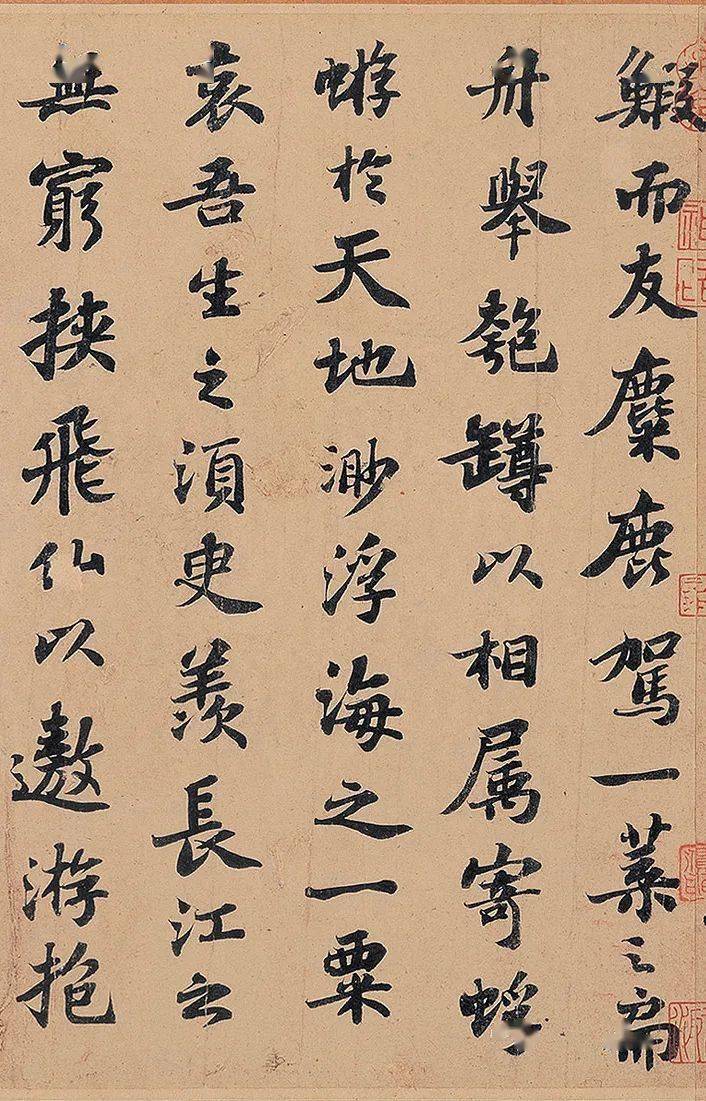 鰕而友麋鹿駕一葉之扁
舟舉匏罇以相属寄蜉
蝣於天地渺浮海之一粟
哀吾生之須臾羨長江之
無窮挾飛仙以遨游抱